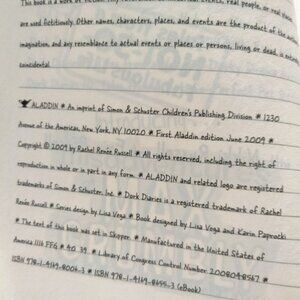 This book is a work of fiction. Any references to historical events, real people, or real places
are used fictitiously. Other names, characters, places, and events are the product of the author's
imagination, and any resemblance to actual events or places or persons, living or dead, is entirely
coincidental.
ALADDIN * An imprint of Simon & Schuster Children's Publishing Division * 1230
Avenue of the Americas, New York, NY 10020 * First Aladdin edition June 2009 *
Copyright © 2009 by Rachel Renée Russell * All rights reserved, including the right of
reproduction in whole or part in any form. * ALADDIN and related logo are registered
trademarks of Simon & Schuster, Inc. * Dork Diaries is a registered trademark of Rachel
Renée Russell * Series design by Lisa Vega * Book designed by Lisa Vega and Karin Paprocki
* The text of this book was set in Skippy. * Manufactured in the United States of
America 1111 FFG * 40 39 * Library of Congress Control Number 2008048567 *
ISBN 978-1-4169-8006-3 * ISBN 978-1-4169-8655-3 (eBook)